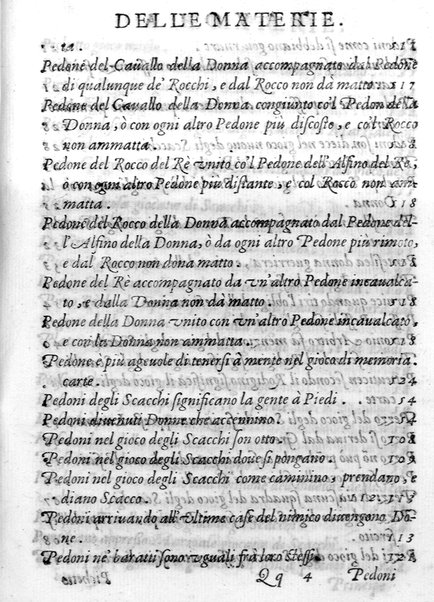 DELLE MATERIE.
ta.
Pedone del Cauallo della Donna accompagnato dal Pedone
di qualunque de' Rocchi, e dal Rocco non dà matto. 117
Pedone del Cauallo della Donna congiunto co'l Pedon della
Donna, ò con ogni altro Pedone piu discosto, e co'l Rocco
non ammatta.
Pedone del Rocco del Rè vnito co'l Pedone dell'Alfino del Rè,
ò con ogni altro Pedone piu distante, e col Rocco non am-
matta.
Pedone del Rocco della Donna accompagnato dal Pedone del-
l'Alfino della Donna, ò da ogni altro Pedone piu rimoto,
e dal Rocco non dona matto.
Pedone del Rè accompagnato da vn'altro Pedone incaualca-
to, e dalla Donna non dà matto.
Pedone della Donna vnito con vn'altro Pedone incaualcato,
e con la Donna non ammatta.
Pedone è più ageuole di tenersi à mente nel gioco di memoria.
carte. 124
Pedoni degli Scacchi significano la gente à Piedi.
Pedoni diuenuti Donne che accennino?
Pedoni nel gioco degli Scacchi son otto.
Pedoni nel gioco degli Scacchi doue si pongano.
Pedoni nel gioco degli Scacchi come caminino, prendano, e
diano Scacco.
Pedoni arriuando all'vltime case del nimico diuengono Do-
ne. 113
Pedoni ne' baratti sono vguali frà loro stessi. 121
Qq 4 Pedoni